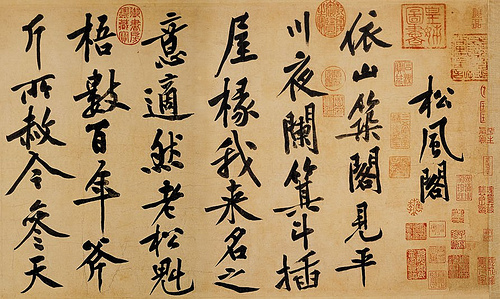 皇姊圖書
松風閣
依山築閣見平
川夜闌箕斗插
屋椽我来名之
意適然老松魁
梧數百年斧
斤所赦令參天